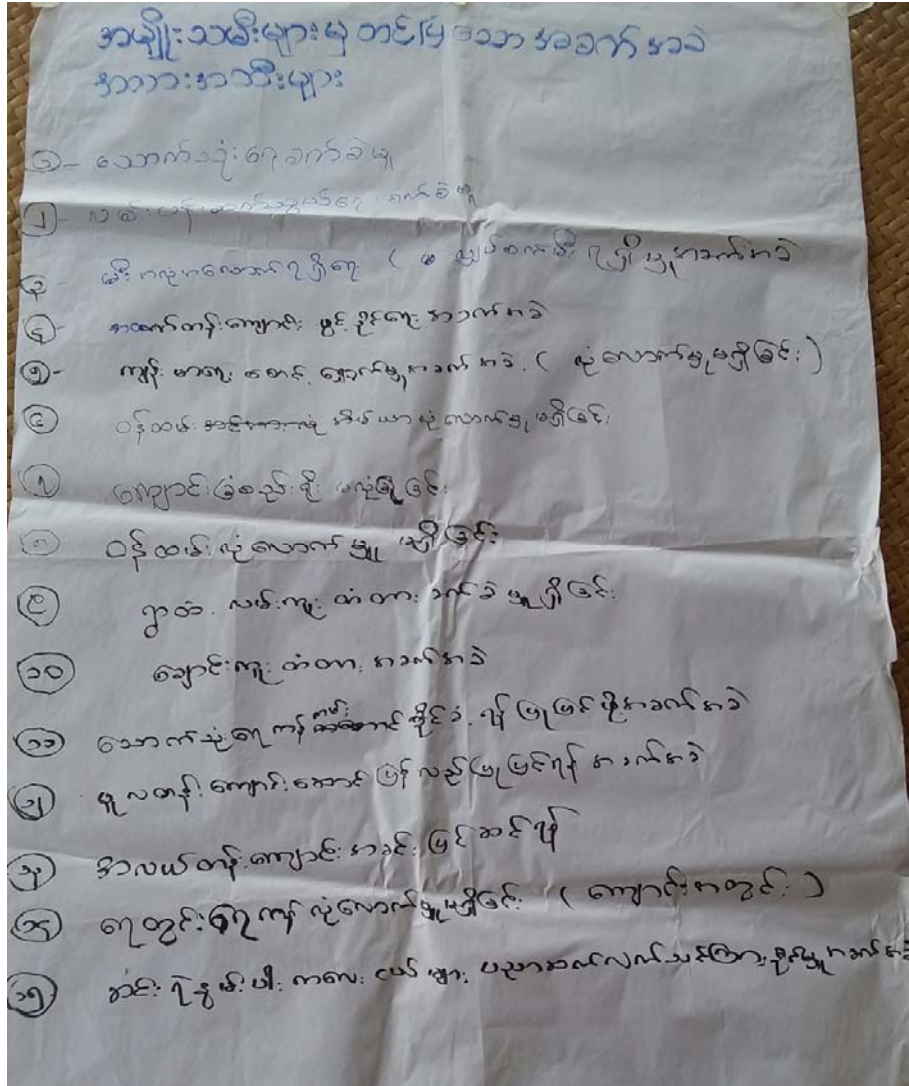 အမျိုးသမီးများမှ တင်ပြသော အခက်အခဲ
အားသာအသီးများ
၁- သောက်သုံးရေခက်ခဲမှု
၂- လမ်းပန်းဆက်သွယ်ရေး ခက်ခဲမှု
၃- မီး မလုံလောက်ရရှိရေး ( မ လျှပ်စစ်မီး ရရှိမှုအခက်အခဲ
၄- အထက်တန်းကျောင်း ဖွင့်နိုင်ရေး အခက်အခဲ
၅- ကျန်းမာရေး စောင့်ရှောက်မှုအခက်အခဲ. ( လုံလောက်မှုမရှိခြင်း )
၆ ဝန်ထမ်း အိမ်ယာလုံလောက်မှု မရှိခြင်း
၇ ကျောင်းခြံစည်းရိုး မလုံခြုံခြင်း
၈ ဝန်ထမ်းလုံလောက်မှု မရှိခြင်း
၉ ရွာထဲ. လမ်းကူးတံတား ခက်ခဲမှုရှိခြင်း
၁၀ ချောင်းကူးတံတား အခက်အခဲ
၁၁ သောက်သုံးရေကန် ပြုပြင်ဖို့အခက်အခဲ
၁၂ မူလတန်းကျောင်းဆောင် ပြန်လည်ပြုပြင်ရန် အခက်အခဲ
၁၃ အလယ်တန်းကျောင်းအခင်းပြင်ဆင်ရန်
၁၄ ရေတွင်းရေကန် လုံလောက်မှုမရှိခြင်း ( ကျောင်းအတွင်း )
၁၅ ဆင်းရဲနွမ်းပါးကလေးငယ်များ ပညာဆက်လက်သင်ကြားနိုင်မှုအခက်အခဲ